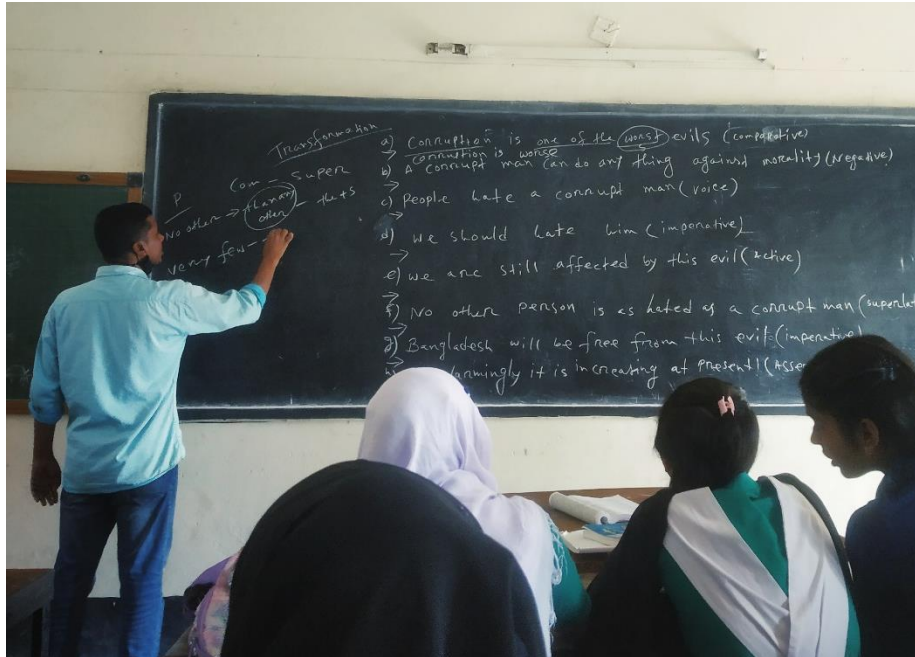 Transformation
P Com - Super
No other → than any other - the + S
very few -
a) Corruption is one of the worst evils (comparative)
→ corruption is worse
b) A corrupt man can do any thing against morality (Negative)
→
c) People hate a corrupt man (voice)
→
d) We should hate him (imperative)
→
e) We are still affected by this evil (Active)
→
f) No other person is as hated as a corrupt man (superlat
→
g) Bangladesh will be free from this evil (imperative)
h) it is increasing at present! (Asser